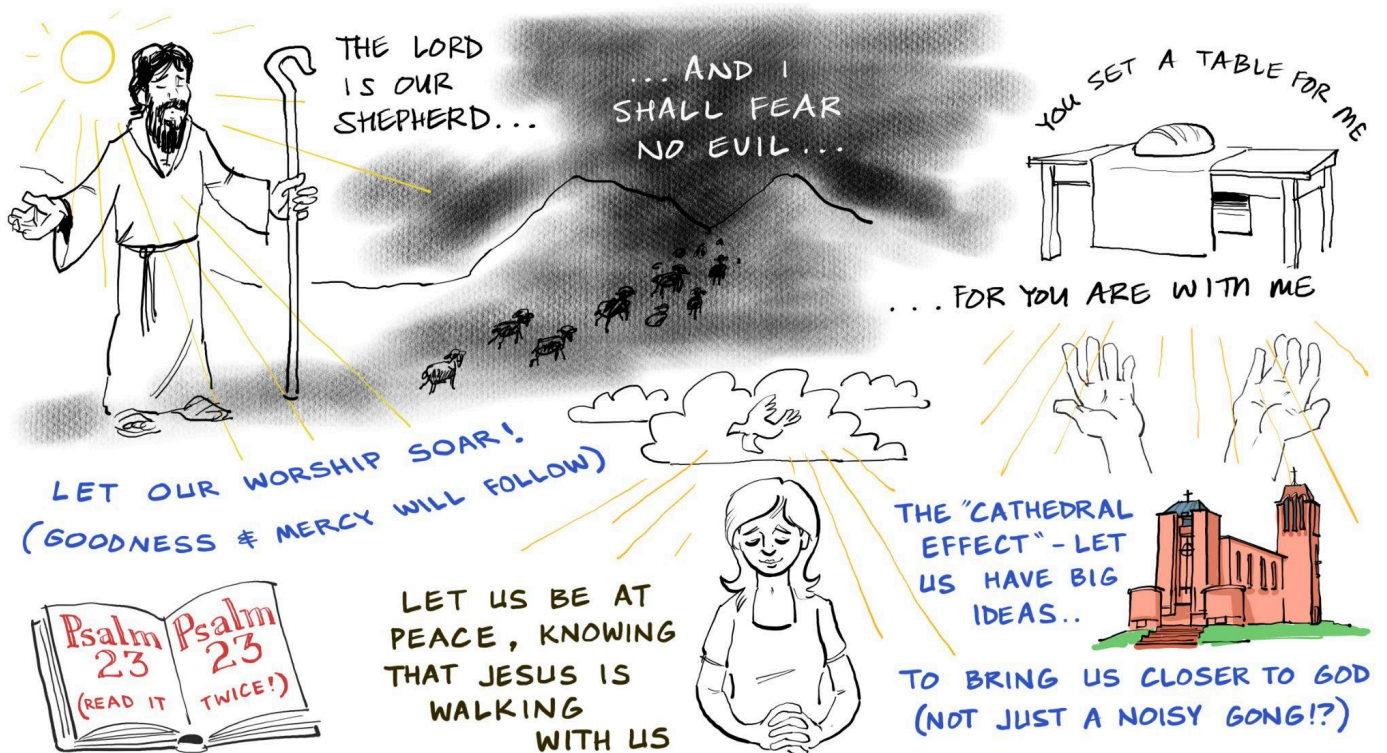 THE LORD
IS OUR
SHEPHERD...
...AND I
SHALL FEAR
NO EVIL...
YOU SET A TABLE FOR ME
...FOR YOU ARE WITH ME
LET OUR WORSHIP SOAR!
(GOODNESS & MERCY WILL FOLLOW)
Psalm
23
(READ IT
Psalm
23
TWICE!)
LET US BE AT
PEACE, KNOWING
THAT JESUS IS
WALKING
WITH US
THE "CATHEDRAL
EFFECT" - LET
US HAVE BIG
IDEAS..
TO BRING US CLOSER TO GOD
(NOT JUST A NOISY GONG!?)